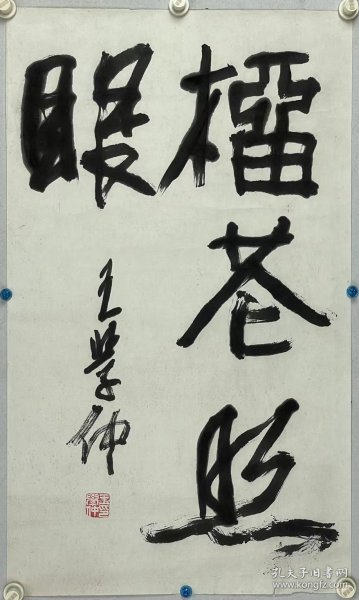 橊花照
眼
王学仲
孔夫子旧书网
www.kongfz.com